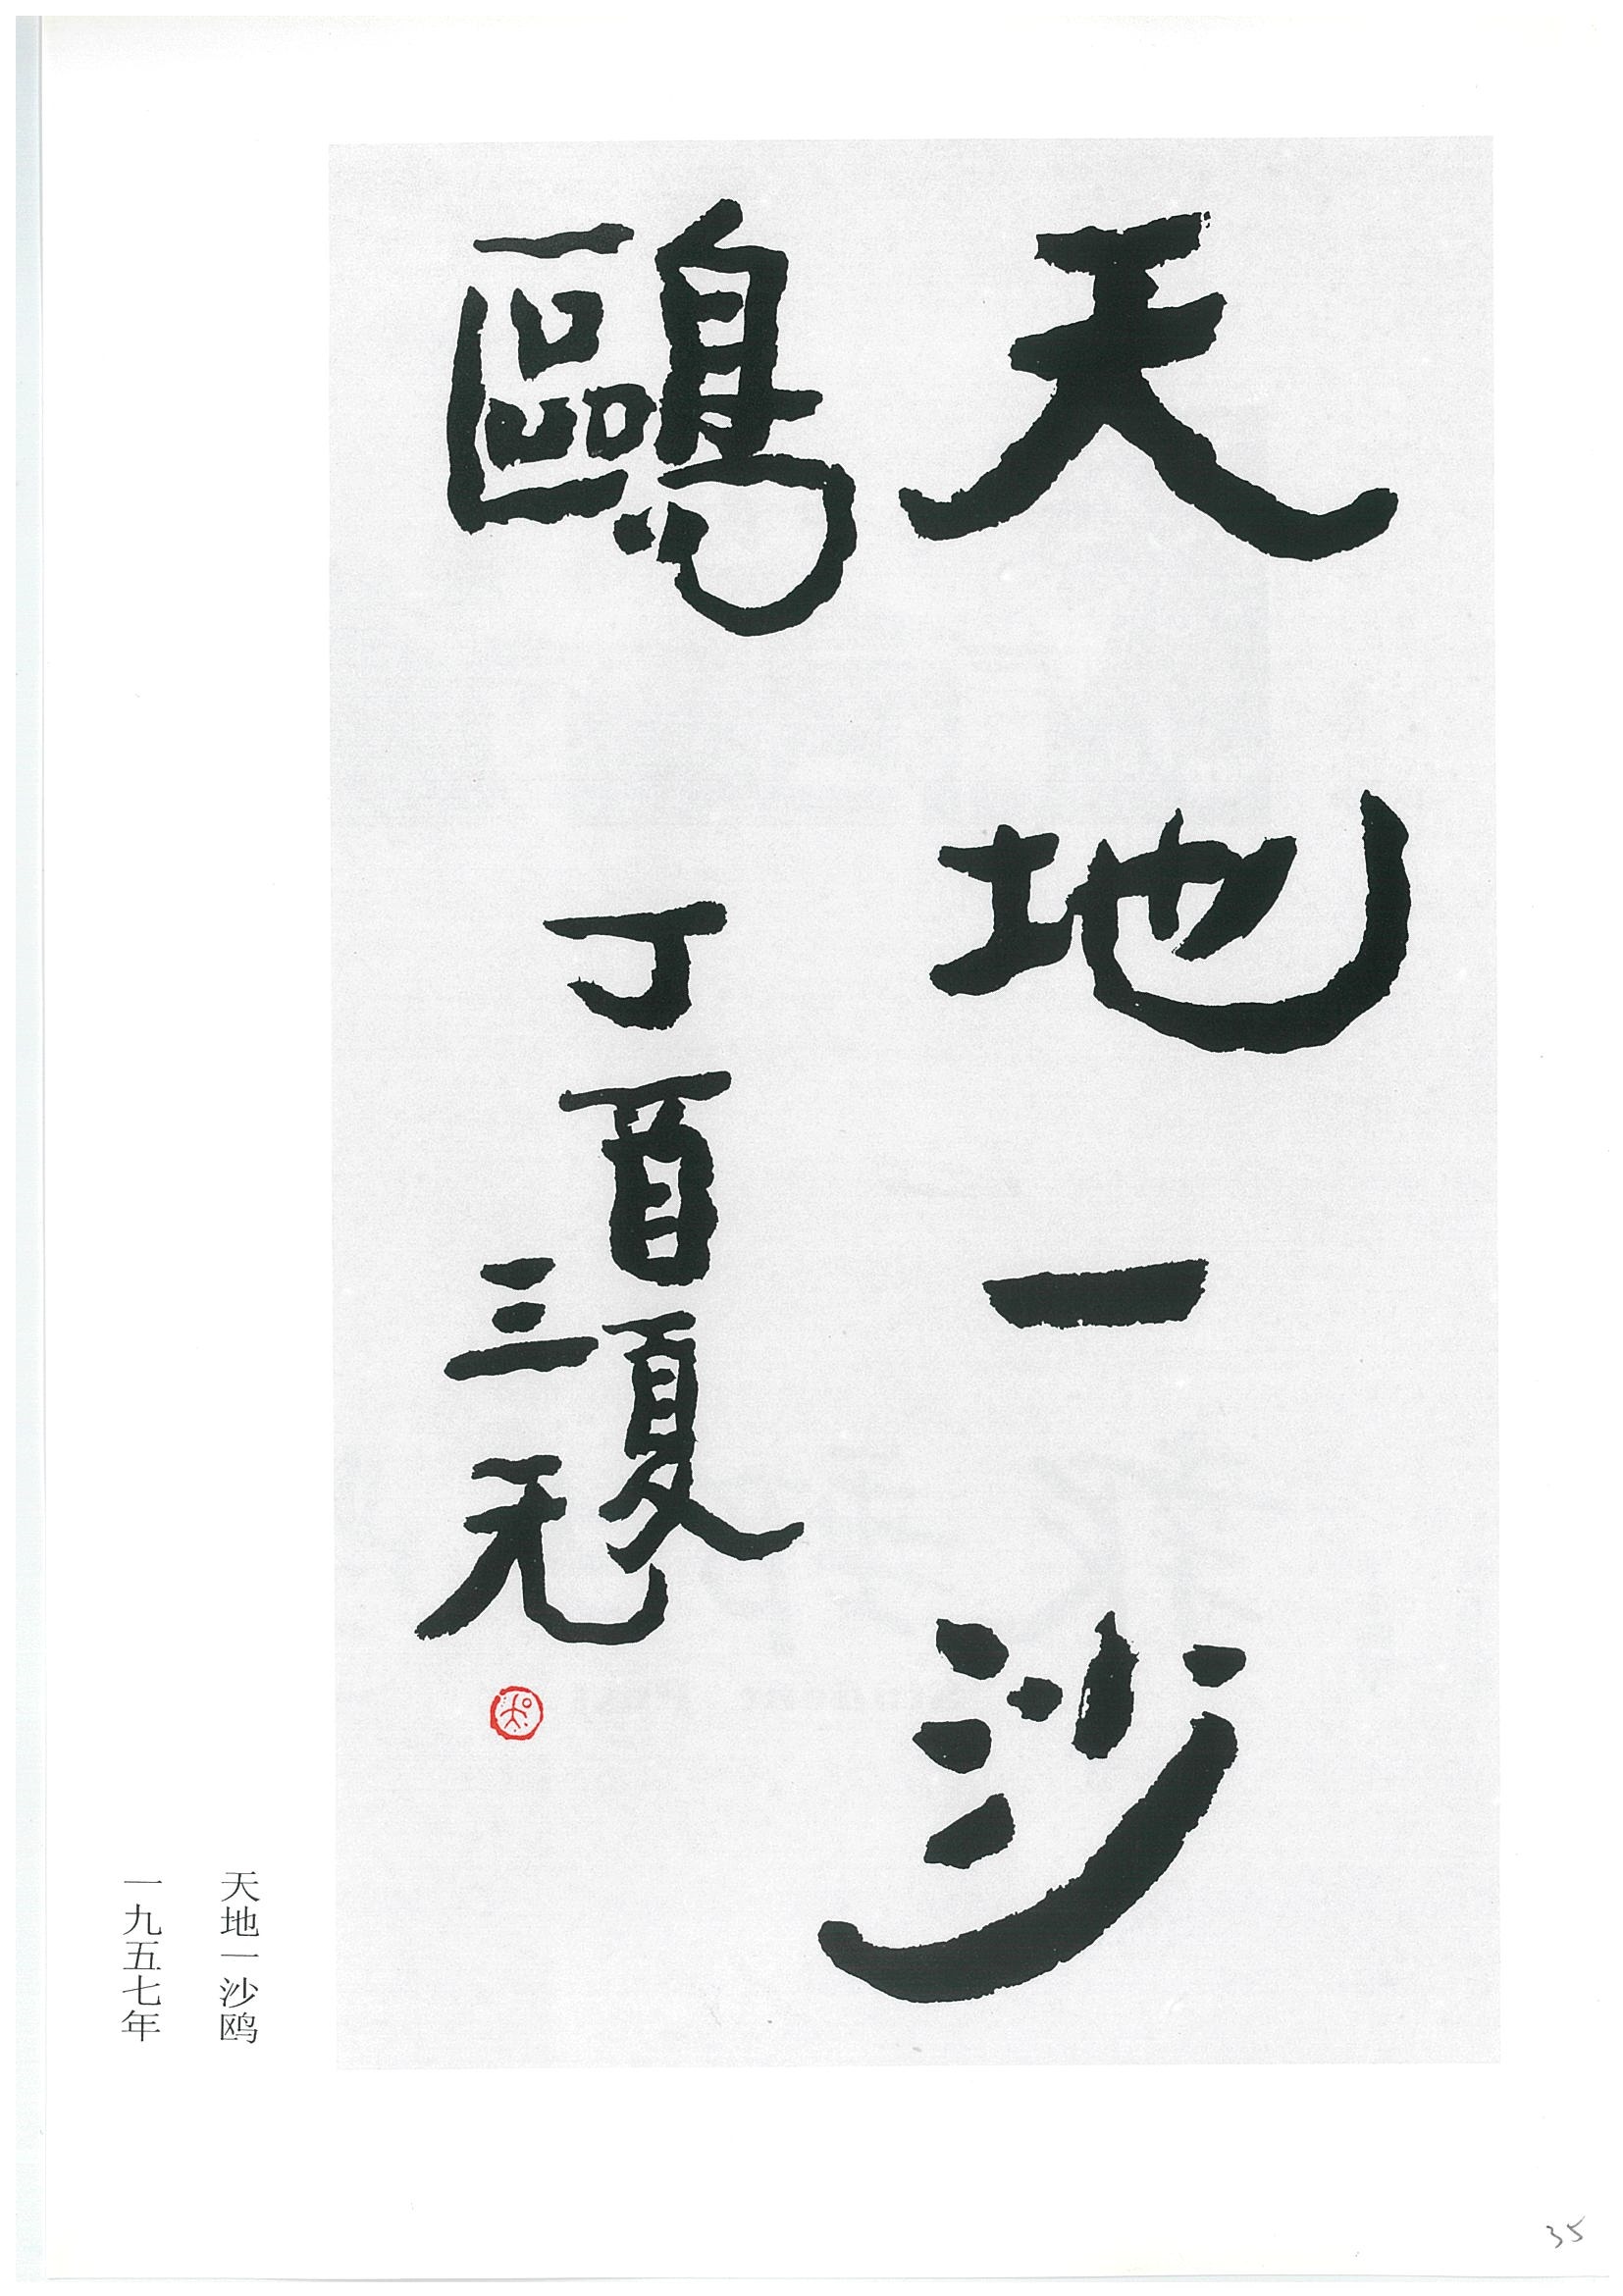 天地一沙
鷗
丁酉夏
三无
天地一沙鸥
一九五七年
35